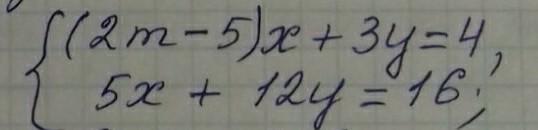 {(2m-5)x+3y=4,
5x+12y=16;